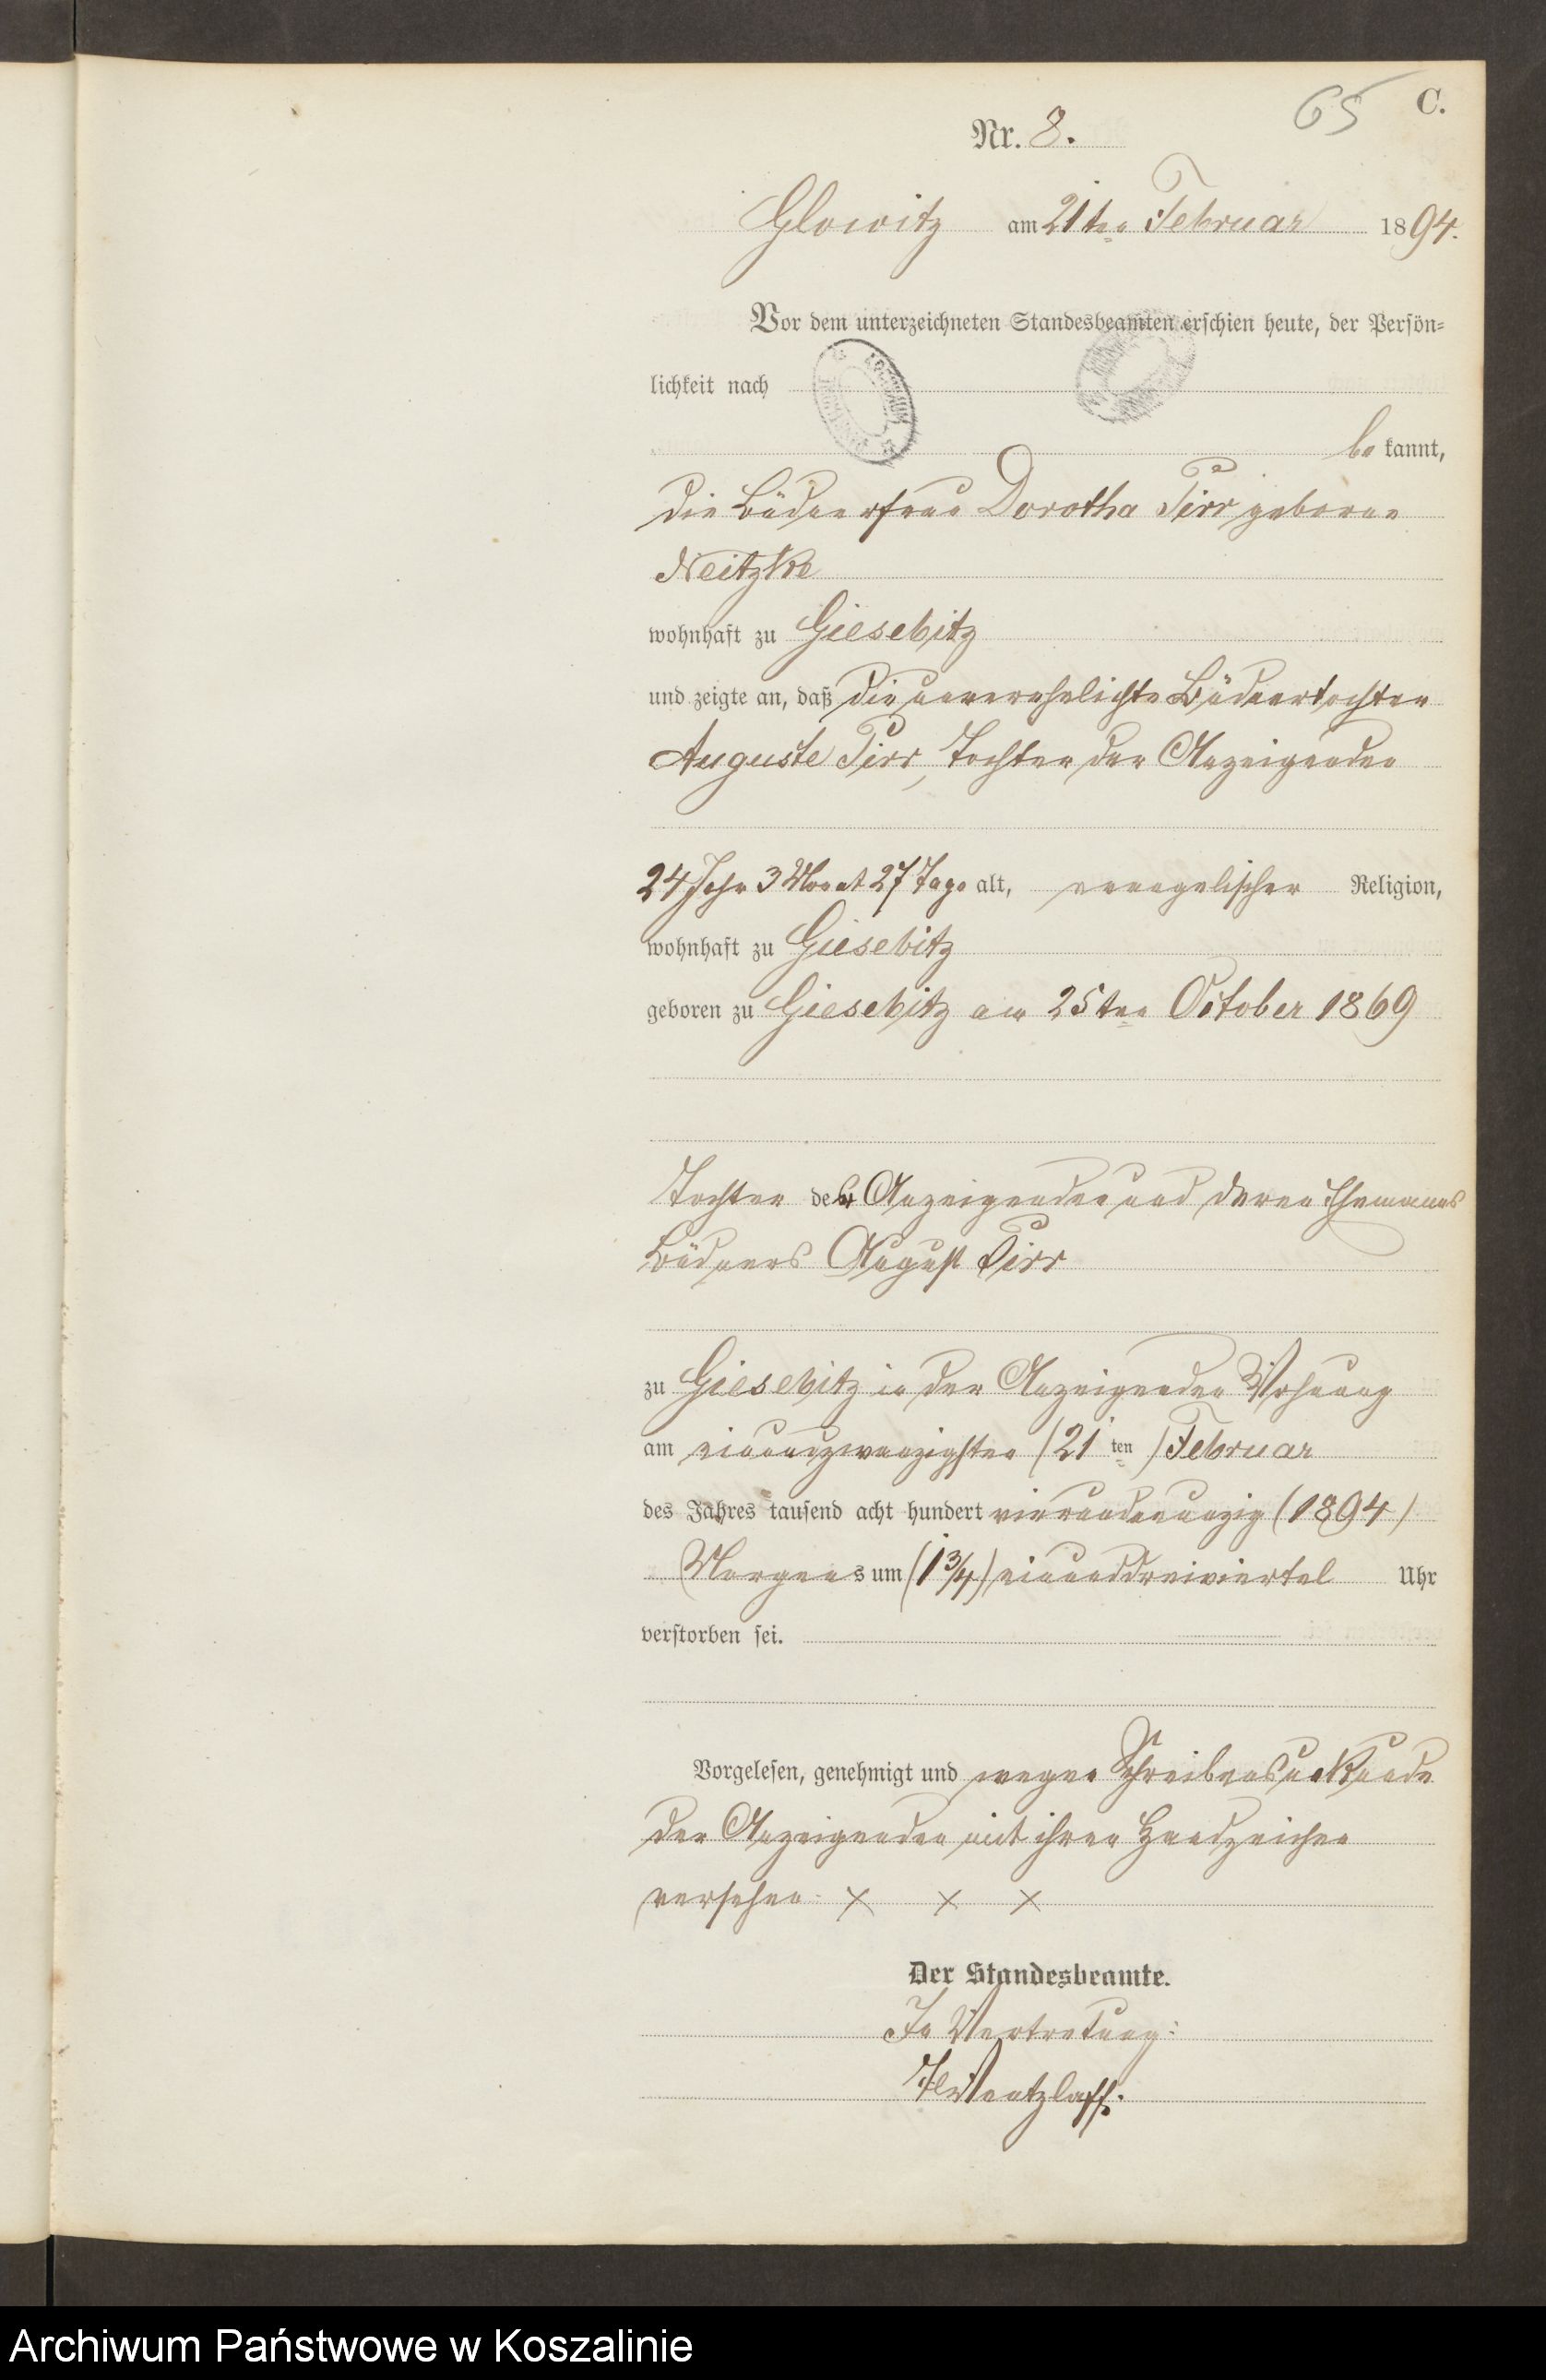 65 C.
Nr. 8.
Glowitz am 21ten Februar 1894.
Vor dem unterzeichneten Standesbeamten erschien heute, der Persön-
lichkeit nach
be kannt,
die Büdnerfrau Dorothea Pirr geborne
Neitzke
wohnhaft zu Giesebitz
und zeigte an, daß die unverehelichte Büdnertochter
Auguste Pirr, Tochter der Anzeigenden
24 Jahr 3 Monat 27 Tage alt, evangelischer Religion,
wohnhaft zu Giesebitz
geboren zu Giesebitz am 25ten October 1869
Tochter der Anzeigenden und deren Ehemanns
Büdners August Pirr
zu Giesebitz in der Anzeigenden Wohnung
am einundzwanzigsten (21ten) Februar
des Jahres tausend acht hundert vierundneunzig (1894)
Morgens um (1 3/4) einunddreiviertel Uhr
verstorben sei.
Vorgelesen, genehmigt und wegen Schreibensunkunde
der Anzeigenden mit ihren Handzeichen
versehen. × × ×
Der Standesbeamte.
In Vertretung:
Wentzlaff.
Archiwum Państwowe w Koszalinie